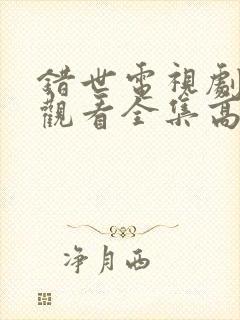 錯世電視劇
觀看全集高
淨月西